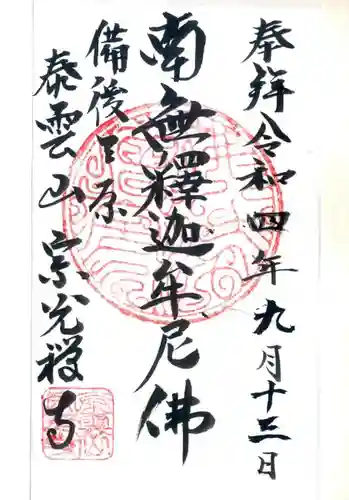 奉拝令和四年九月十三日
南無釋迦牟尼佛
備後三原
泰雲山宗光禅寺